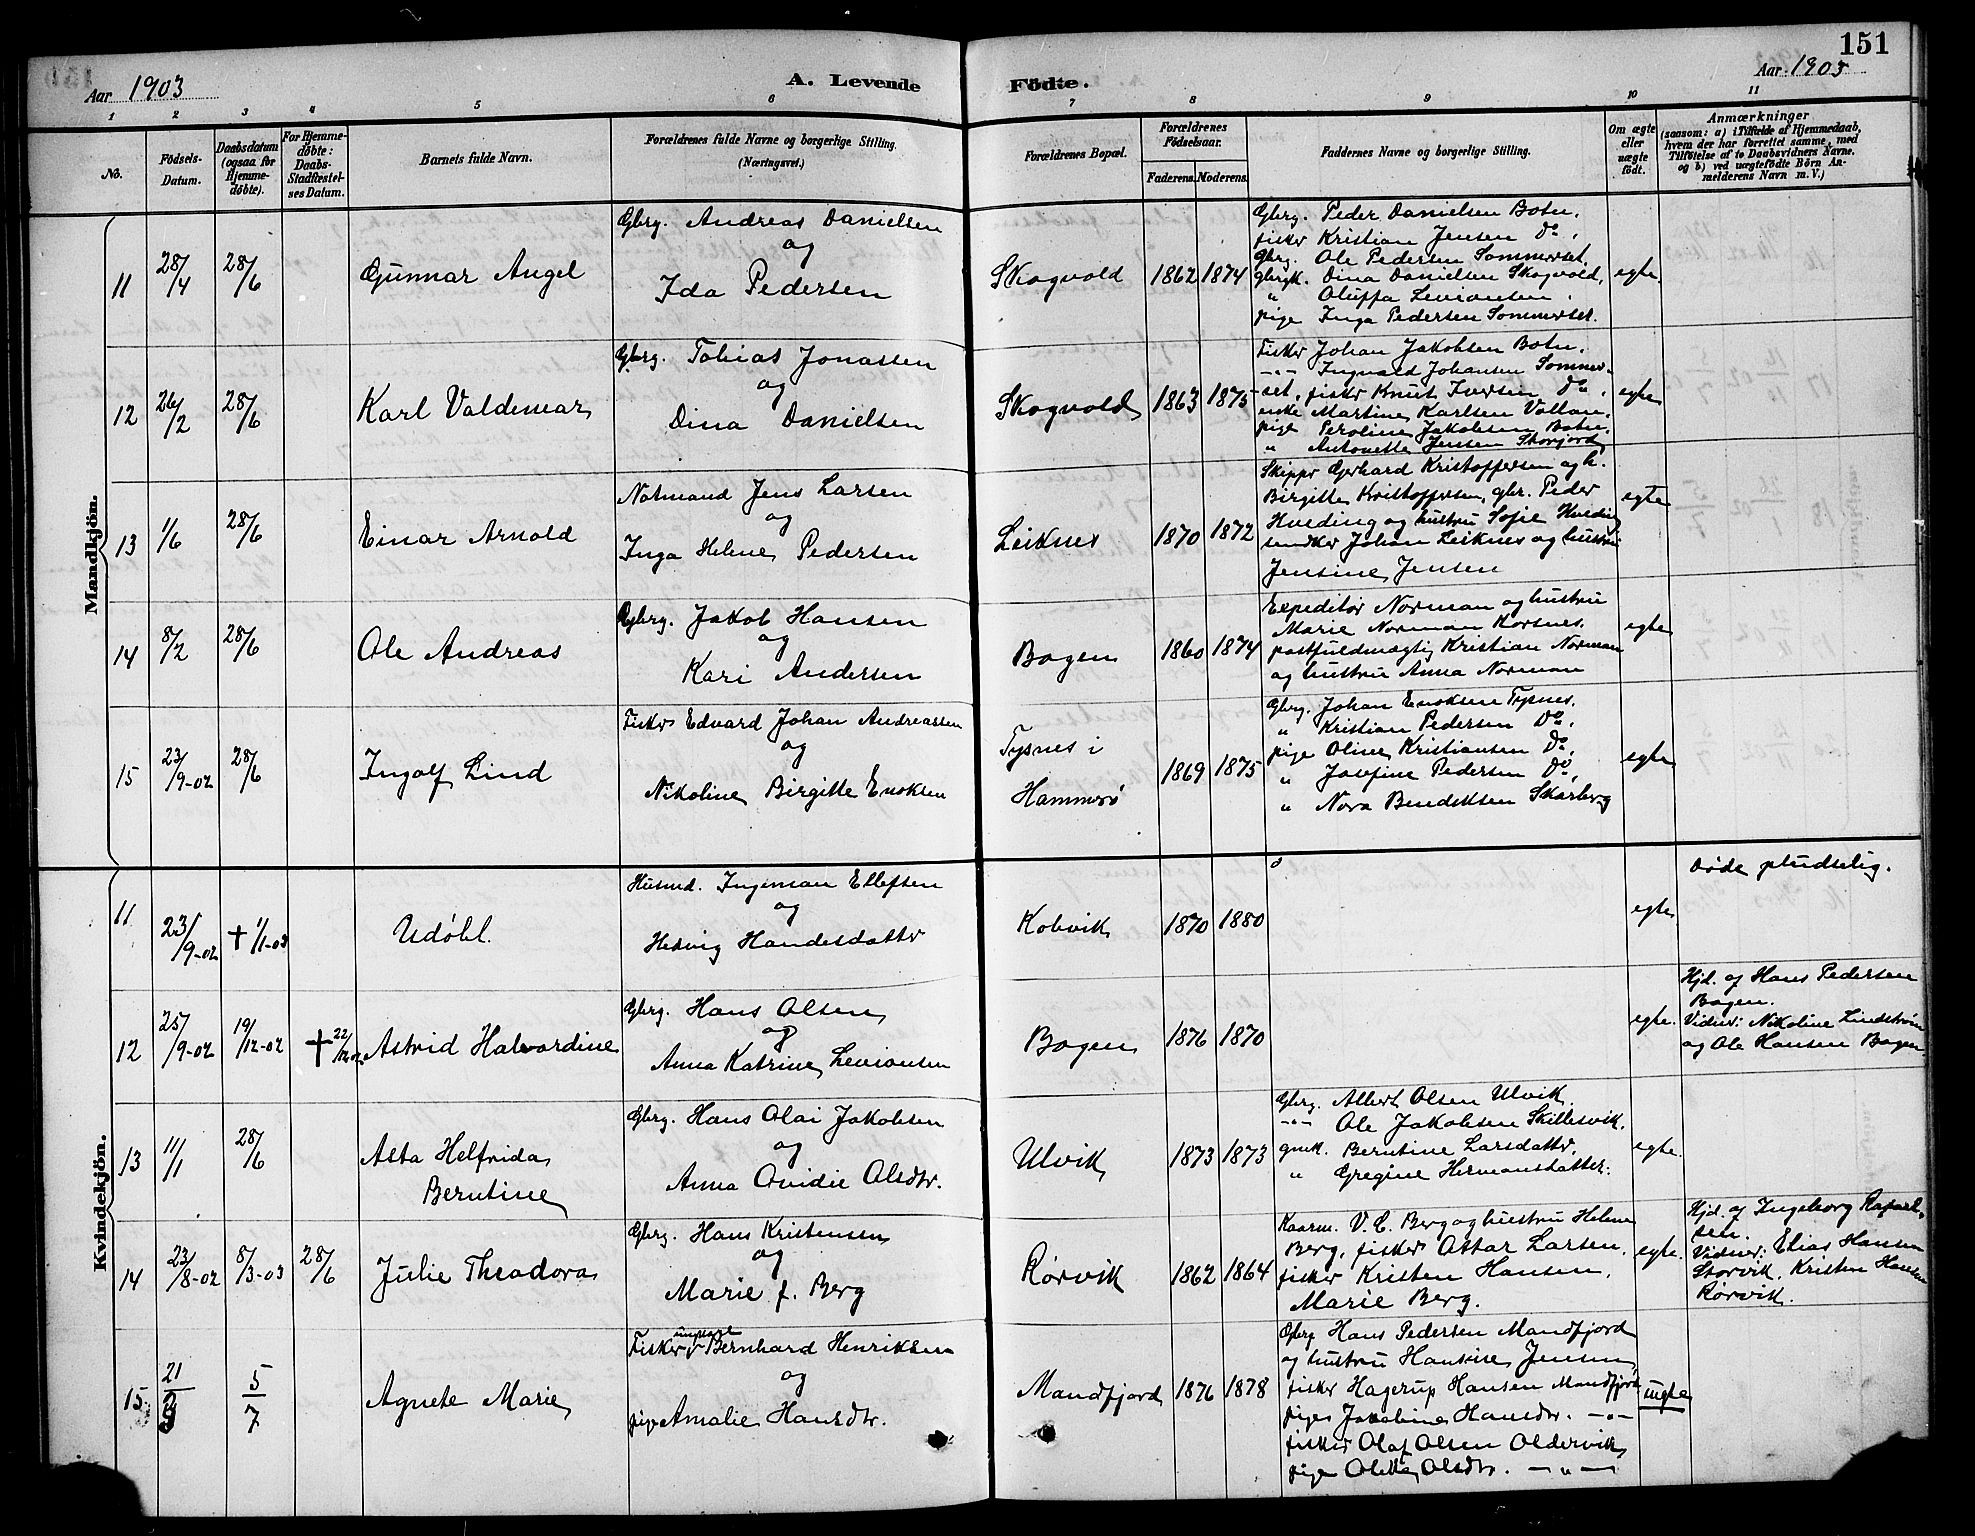 151
Aar 1903
A. Levende
Födte.
Aar 1903
1 2 3 4 5 6 7 8 9 10 11
No.
Födsels-
Datum.
Daabsdatum
(ogsaa for
Hjemme-
døbte).
For Hjemme-
døbte:
Daabs-
Stadfæstel-
ses Datum.
Barnets fulde Navn.
Forældrenes fulde Navne og borgerlige Stilling.
(Næringsvei.)
Forældrenes Bopæl.
Forældrenes
Födselsaar.
Faderens. Moderens.
Faddernes Navne og borgerlige Stilling.
Om ægte
eller
uægte
født.
Anmærkninger
(saasom: a) i Tilfælde af Hjemmedaab,
hvem der har forrettet samme, med
Tilföielse af to Daabsvidners Navne,
og b) ved uægtefödte Börn An-
melderens Navn m. V.)
Mandkjön.
11 28/4 28/6 Gunnar Angel
Gbrg. Andreas Danielsen
og
Ida Pedersen
Skogvold 1862 1874
Gbrg. Peder Danielsen Botn.
fisker Kristian Jensen Do.
Gbrg. Ole Pedersen Sommerset.
Gbrgk. Dina Danielsen Skogvold,
" Oluffa Leviansen.
pige Inga Pedersen Sommerset.
egte.
12 26/2 28/6 Karl Valdemar
Gbrg. Tobias Jonassen
og
Dina Danielsen
Skogvold 1863 1875
Fisker Johan Jakobsen Botn.
-"- Ingvald Johansen Sommer-
set, fisker Knut Iversen Do.
enke Martine Karlsen Vollan.
pige Peroline Jakobsen Botn.
" Antonette Jensen Storjord
egte
13 1/6 28/6 Einar Arnold
Notmand Jens Larsen
og
Inga Helene Pedersen
Leiknes 1870 1872
Skipper Gerhard Kristoffersen og h.
Birgitte Kristoffersen, gbr. Peder
Hveding og hustru Sofie Hveding
Johan Leiknes og hustru
Jensine Jensen
egte
14 8/2 28/6 Ole Andreas
Gbrg. Jakob Hansen
og
Kari Andersen
Bogen 1860 1874
Expeditör Norman og hustru
Marie Norman Korsnes.
postfuldmægtig Kristian Norman
og hustru Anna Norman
egte
15 23/9-02 28/6 Ingolf Lind
Fisker Edvard Johan Andreassen
og
Nikoline Birgitte Enoksen
Tysnes i
Hammerö
1869 1875
Gbrg. Johan Enoksen Tysnes.
" Kristian Pedersen Do.
pige Oline Kristiansen Do.
" Josefine Pedersen Do.
" Nora Bendiksen Skarberg
egte
Kvindekjön.
11 23/9-02 † 1/1-03 Udöbt.
Husmd. Ingeman Ellefsen
og
Hedvig Handesdatter
Kobvik 1870 1880
egte
Döde pludselig.
12 25/9-02 19/12-02 † 22/12-02 Astrid Halvardine
Gbrg. Hans Olsen
og
Anna Katrine Leviansen
Bogen 1876 1870
egte.
Hjd. af Hans Pedersen
Bogen.
Vidner: Nikoline Lindström
og Ole Hansen Bogen
13 11/1 28/6 Asta Helfrida
Berntine
Gbrg. Hans Olai Jakobsen
og
Anna Ovidie Olsdtr.
Ulvik 1873 1873
Gbrg. Albert Olsen Ulvik.
-"- Ole Jakobsen Skillesvik.
gmk. Berntine Larsdatter.
" Gregine Hermansdatter.
egte.
14 23/8-02 8/3-03 28/6 Julie Theadora
Gbrg. Hans Kristensen
og
Marie f. Berg
Rørvik 1862 1864
Kaarm. V. C. Berg og hustru Helene
Berg, fisker Ottar Larsen,
fisker Kristen Hansen,
Marie Berg.
egte.
Hjd. af Ingeborg Rafael-
sen.
Vidner: Elias Hansen
Storvik, Kristen Hansen
Rørvik.
15 21/3 5/7 Agnete Marie
Fisker ungkarl Bernhard Henriksen
og
pige Amalie Hansdtr.
Mandfjord 1876 1878
Gbrg Hans Pedersen Mandfjord
og hustru Hansine Jensen,
fisker Hagerup Hansen Mandfjord
pige Jakobine Hansdtr. -"-
fisker Olaf Olsen Oldervik
pige Oletta Olsdtr. -"-
uegte